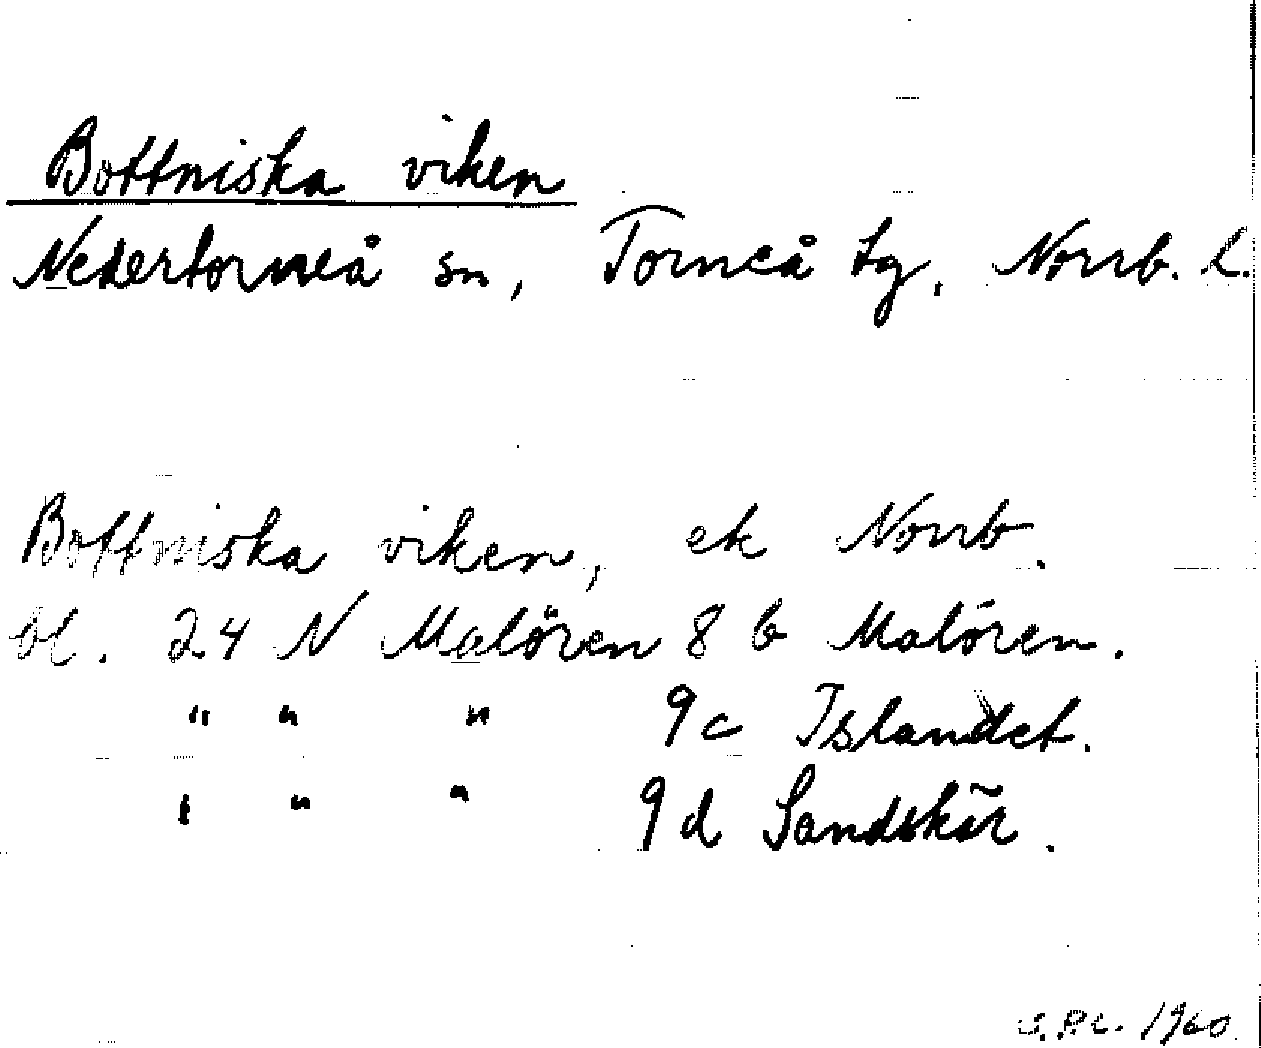 Bottniska viken
Nedertorneå sn, Torneå tg, Norrb. l.
Bottniska viken, ek Norrb.
bl. 24 N Malören 8 b Malören.
" " " 9c Islandet.
" " " 9d Sandskär.
1960